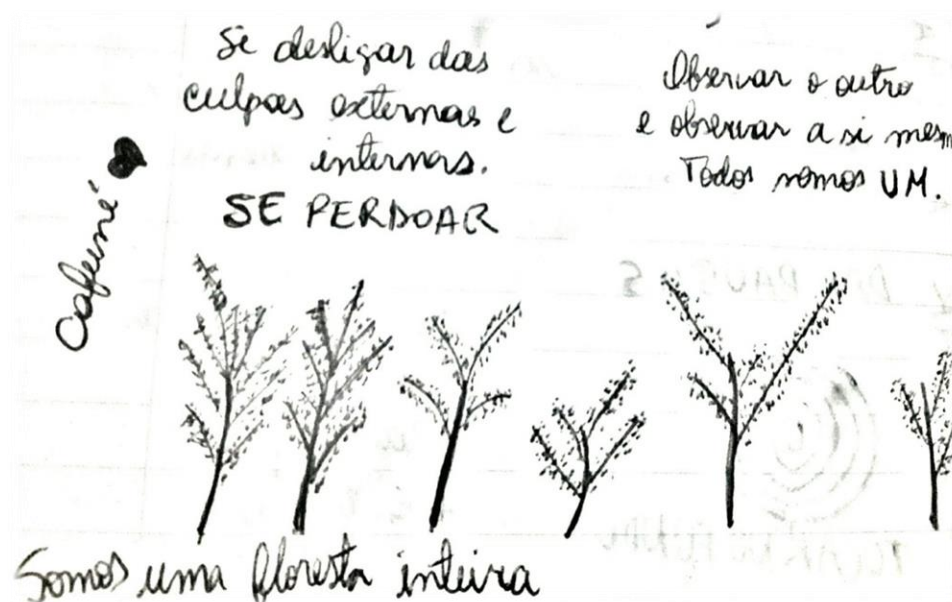 Se desligar das
culpas externas e
internas.
SE PERDOAR
Observar o outro
e observar a si mesm
Todos somos UM.
Cafuné
Somos uma floresta inteira